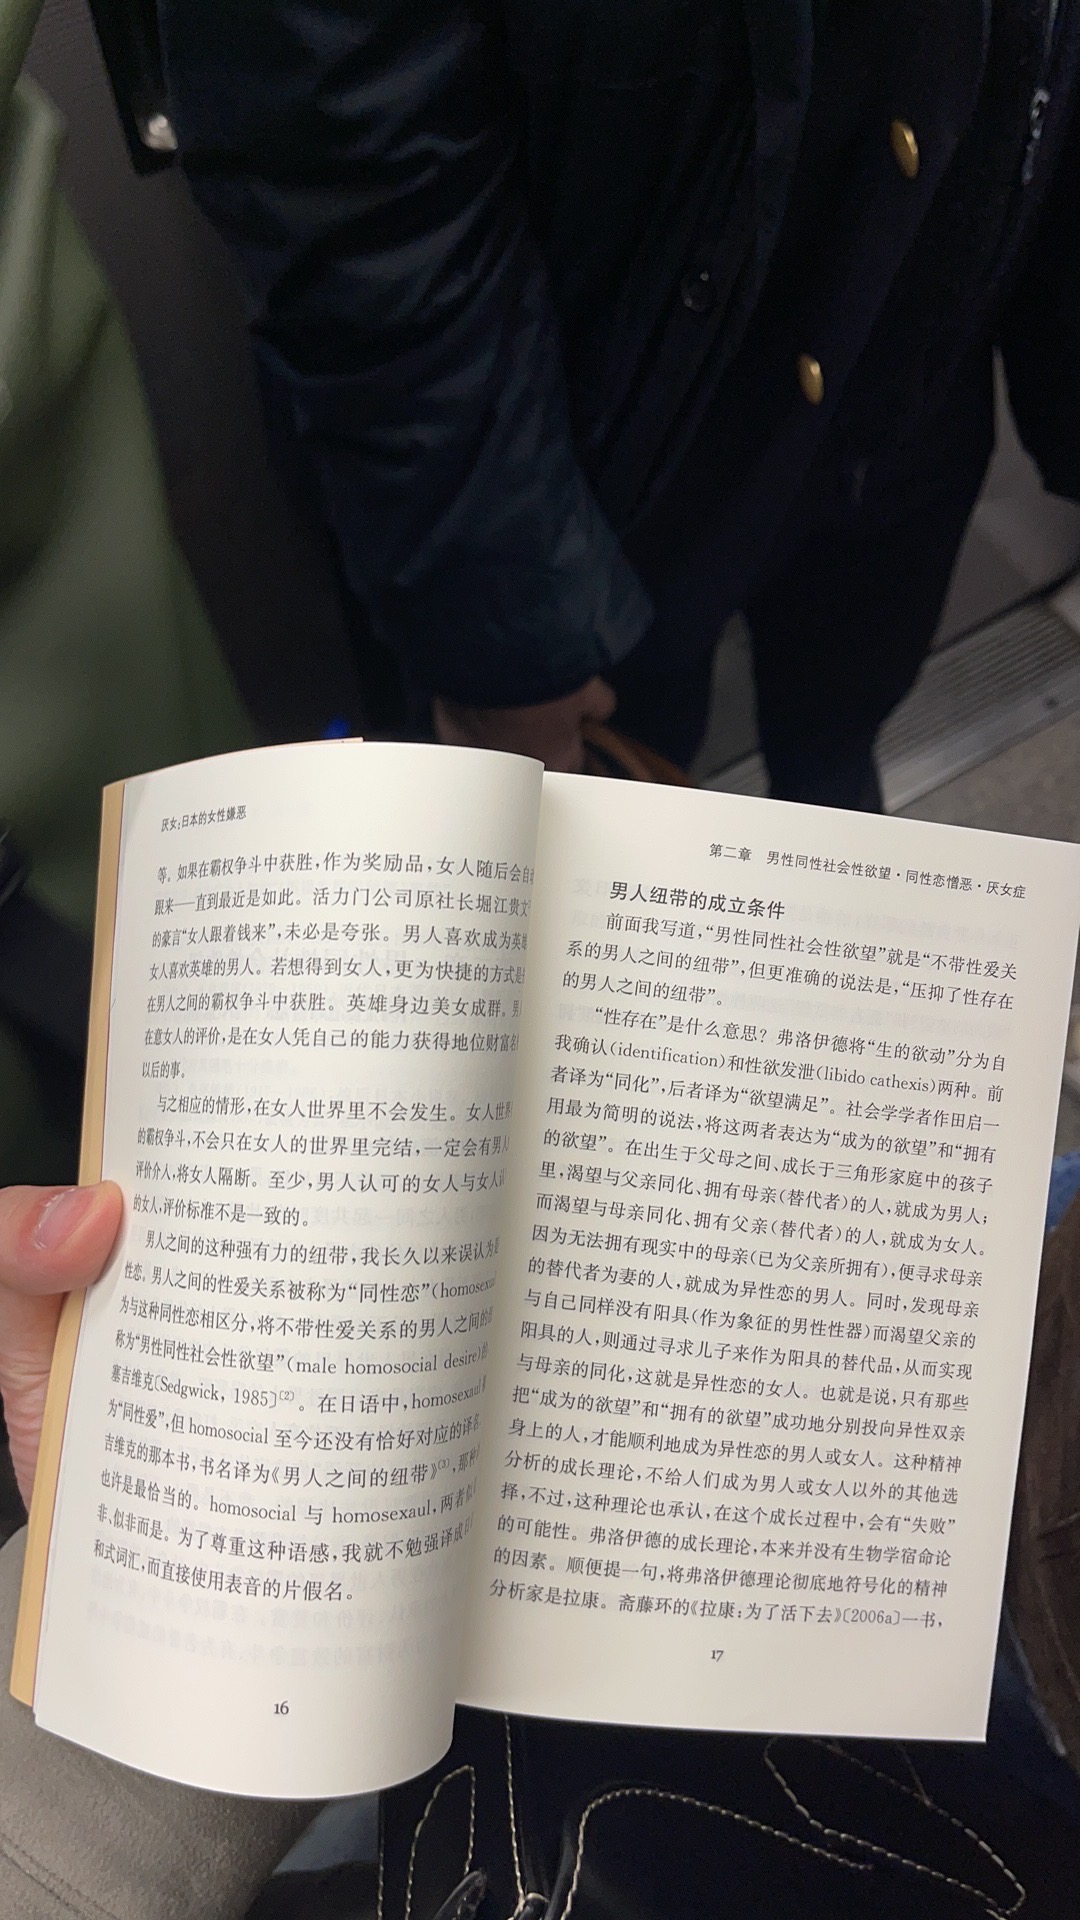 厌女：日本的女性嫌恶
等。如果在霸权争斗中获胜，作为奖励品，女人随后会自
跟来——直到最近是如此。活力门公司原社长堀江贵文
的豪言“女人跟着钱来”，未必是夸张。男人喜欢成为英雄
女人喜欢英雄的男人。若想得到女人，更为快捷的方式是
在男人之间的霸权争斗中获胜。英雄身边美女成群。男
在意女人的评价，是在女人凭自己的能力获得地位财富名
以后的事。
与之相应的情形，在女人世界里不会发生。女人世
的霸权争斗，不会只在女人的世界里完结，一定会有男人
评价介入，将女人隔断。至少，男人认可的女人与女人
的女人，评价标准不是一致的。
男人之间的这种强有力的纽带，我长久以来误认为
性恋。男人之间的性爱关系被称为“同性恋”(homosexu
为与这种同性恋相区分，将不带性爱关系的男人之间的
称为“男性同性社会性欲望”(male homosocial desire)的
塞吉维克〔Sedgwick, 1985〕(2)。在日语中，homosexaul
为“同性爱”，但 homosocial 至今还没有恰好对应的译名
吉维克的那本书，书名译为《男人之间的纽带》(3)，那种
也许是最恰当的。homosocial 与 homosexaul，两者似
非，似非而是。为了尊重这种语感，我就不勉强译成
和式词汇，而直接使用表音的片假名。
16
第二章 男性同性社会性欲望·同性恋憎恶·厌女症
男人纽带的成立条件
前面我写道，“男性同性社会性欲望”就是“不带性爱关
系的男人之间的纽带”，但更准确的说法是，“压抑了性存在
的男人之间的纽带”。
“性存在”是什么意思？弗洛伊德将“生的欲动”分为自
我确认(identification)和性欲发泄(libido cathexis)两种。前
者译为“同化”，后者译为“欲望满足”。社会学学者作田启一
用最为简明的说法，将这两者表达为“成为的欲望”和“拥有
的欲望”。在出生于父母之间、成长于三角形家庭中的孩子
里，渴望与父亲同化、拥有母亲(替代者)的人，就成为男人；
而渴望与母亲同化、拥有父亲(替代者)的人，就成为女人。
因为无法拥有现实中的母亲(已为父亲所拥有)，便寻求母亲
的替代者为妻的人，就成为异性恋的男人。同时，发现母亲
与自己同样没有阳具(作为象征的男性性器)而渴望父亲的
阳具的人，则通过寻求儿子来作为阳具的替代品，从而实现
与母亲的同化，这就是异性恋的女人。也就是说，只有那些
把“成为的欲望”和“拥有的欲望”成功地分别投向异性双亲
身上的人，才能顺利地成为异性恋的男人或女人。这种精神
分析的成长理论，不给人们成为男人或女人以外的其他选
择，不过，这种理论也承认，在这个成长过程中，会有“失败”
的可能性。弗洛伊德的成长理论，本来并没有生物学宿命论
的因素。顺便提一句，将弗洛伊德理论彻底地符号化的精神
分析家是拉康。斋藤环的《拉康：为了活下去》〔2006a〕一书，
17